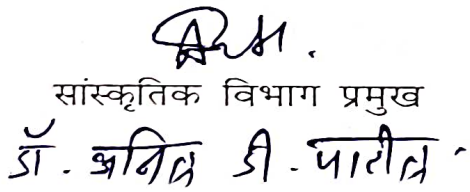 सांस्कृतिक विभाग प्रमुख
डॉ. अनिल डी. पाटील